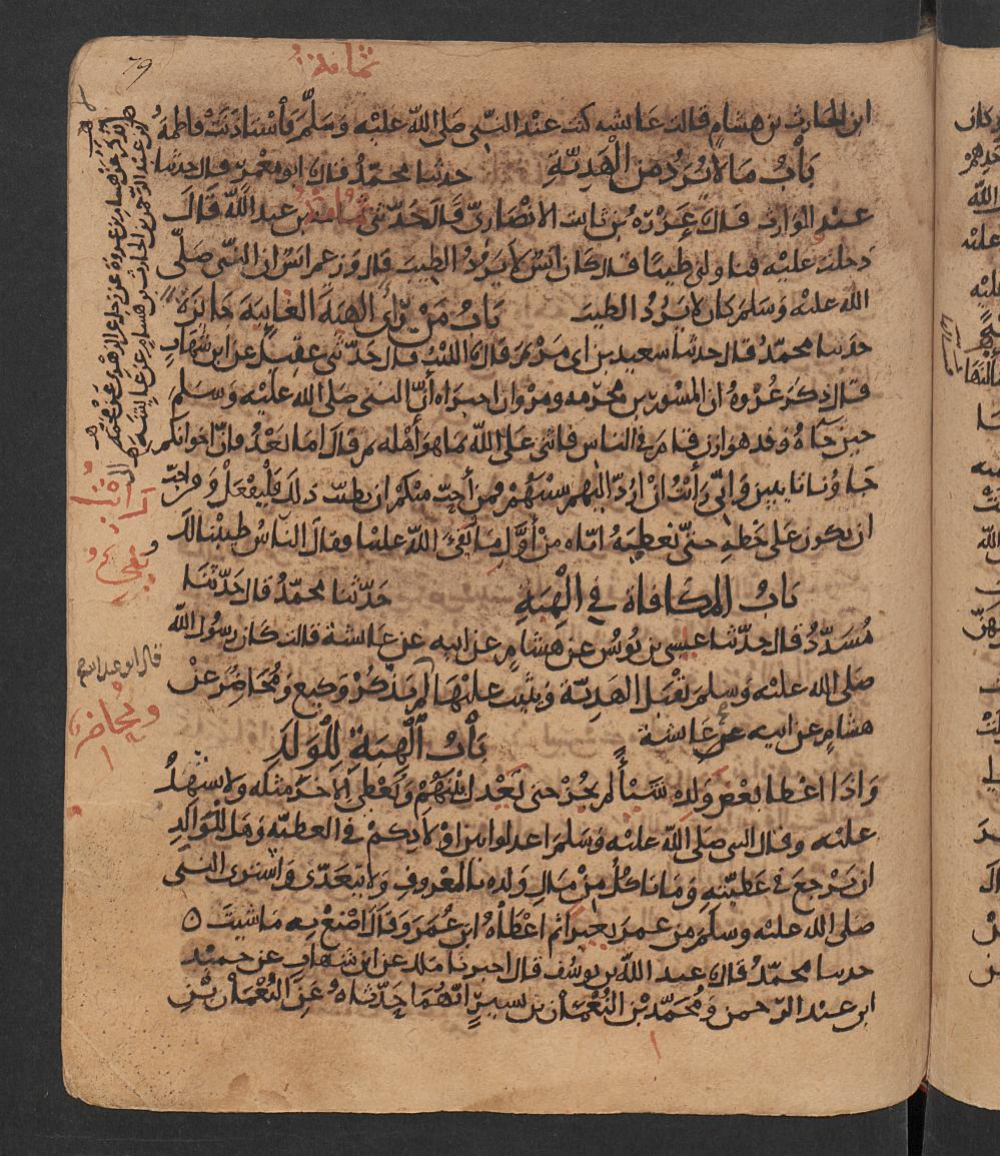 79
ثمامة
ابن الحارث بن هشام قالت عائشه كنت عند النبي صلى الله عليه وسلم فاستاذنت فاطمة
باب ما لا يرد من الهدية حدثنا محمد قال ابو معمر قال حدثنا
عبد الوارث قال عزره بن ثابت الانصاري قال حدثني ثمامة بن عبد الله قال
دخلت عليه فناولني طيبا قال كان انس لا يرد الطيب قال وزعم انس ان النبي صلى
الله عليه وسلم كان لا يرد الطيب باب من رأى الهبة الغايبة جائزة
حدثنا محمد قال حدثنا سعيد بن ابي مريم قال الليث قال حدثني عقيل عن ابن شهاب
قال ذكر عروة ان المسور بن مخرمه ومروان اخبراه أن النبي صلى الله عليه وسلم
حين جآه وفد هوازن قام في الناس فاثنى على الله بما هو أهله ثم قال اما بعد فان اخوانكم
جاونا تايبين وإني رأيت أن أرد اليهم سبيهم فمن أحب منكم ان يطيب ذلك فليفعل ومن احب
ان يكون على حظه حتى نعطيه اياه من أول ما يفئ الله علينا فقال الناس طيبنا لك
باب المكافاة في الهبة حدثنا محمد قال حدثنا
مسدد قال حدثنا عيسى بن يونس عن هشام عن ابيه عن عائشة قالت كان رسول الله
صلى الله عليه وسلم يقبل الهدية ويثيب عليها لم يذكر وكيع ومحاضر عن
هشام عن ابيه عن عائشة باب الهبة للولد
واذا اعطا بعض ولده شيئا لم يجز حتى يعدل بينهم ويعطي الاخر مثله ولا يشهد
عليه وقال النبي صلى الله عليه وسلم اعدلوا بين اولادكم في العطية وهل للوالد
ان يرجع في عطيته وما ياكل من مال ولده بالمعروف ولا يتعدى واشترى النبي
صلى الله عليه وسلم من عمر بعيرا ثم اعطاه ابن عمر وقال اصنع به ما شيت ه
حدثنا محمد قال عبد الله بن يوسف قال اخبرنا ملك عن ابن شهاب عن حميد
ابن عبد الرحمن ومحمد بن النعمان بن بشير انهما حدثاه عن النعمان بن
قال ابو عبد الله
ومحاضر